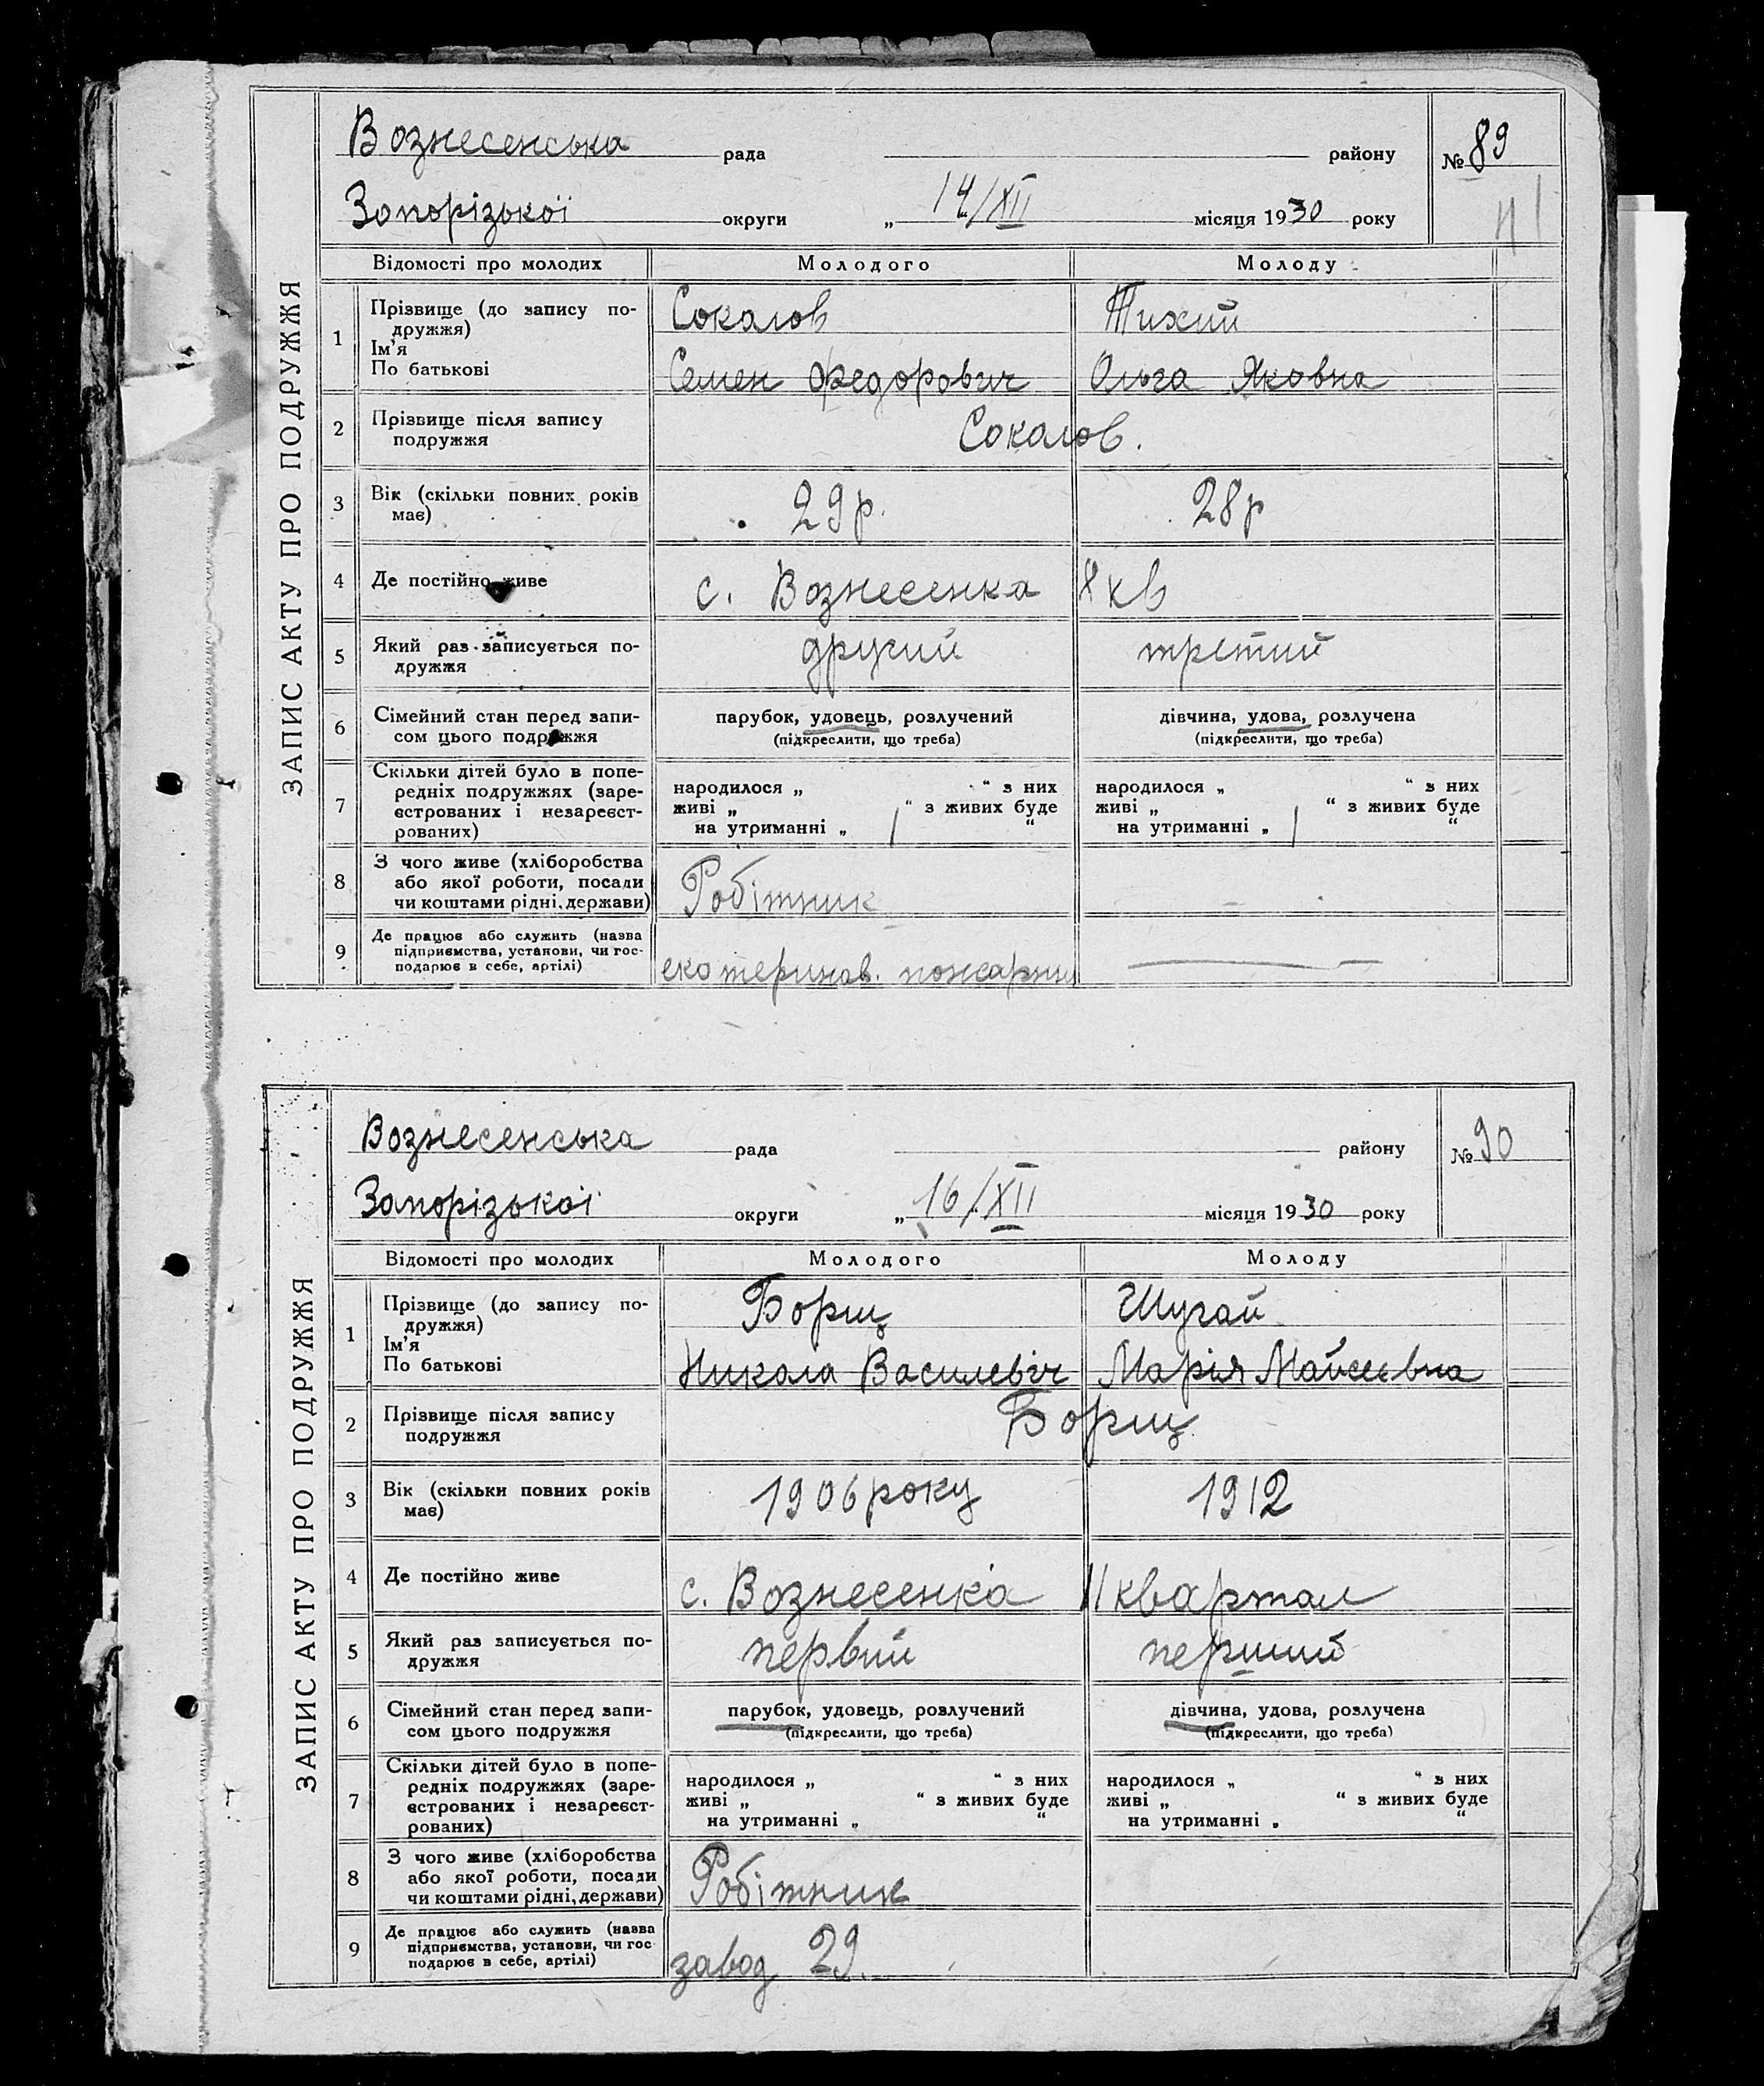 ЗАПИС АКТУ ПРО ПОДРУЖЖЯ
Вознесенська рада району № 89
Запорізької округи „ 14/XII місяця 1930 року
41
Відомості про молодих Молодого Молоду
1 Прізвище (до запису по- Сокалов Тихий
дружжя)
Ім'я
По батькові Семен Федорович Ольга Яковна
2 Прізвище після запису
подружжя Сокалов.
3 Вік (скільки повних років 29р. 28р
має)
4 Де постійно живе с. Вознесенка 8 кв
5 Який раз записується по- другий третий
дружжя
6 Сімейний стан перед запи- парубок, удовець, розлучений дівчина, удова, розлучена
сом цього подружжя (підкреслити, що треба) (підкреслити, що треба)
7 Скільки дітей було в попе-
редніх подружжях (заре- народилося „ “ з них народилося „ “ з них
єстрованих і незареєст- живі „ “ з живих буде живі „ “ з живих буде
рованих) на утриманні „ 1 “ на утриманні „ 1 “
8 З чого живе (хліборобства
або якої роботи, посади Робітник
чи коштами рідні, держави)
9 Де працює або служить (назва
підприємства, установи, чи гос-
подарює в себе, артілі) екатеринов. —
ЗАПИС АКТУ ПРО ПОДРУЖЖЯ
Вознесенська рада району № 90
Запорізької округи „ 16/XII місяця 1930 року
Відомості про молодих Молодого Молоду
1 Прізвище (до запису по- Борщ Шугай
дружжя)
Ім'я
По батькові Никола Василевіч Марія Мойсеєвна
2 Прізвище після запису Борщ
подружжя
3 Вік (скільки повних років 1906 року 1912
має)
4 Де постійно живе с. Вознесенка 11 квартал
5 Який раз записується по- первий перший
дружжя
6 Сімейний стан перед запи- парубок, удовець, розлучений дівчина, удова, розлучена
сом цього подружжя (підкреслити, що треба) (підкреслити, що треба)
7 Скільки дітей було в попе-
редніх подружжях (заре- народилося „ “ з них народилося „ “ з них
єстрованих і незареєст- живі „ “ з живих буде живі „ “ з живих буде
рованих) на утриманні „ “ на утриманні „ “
8 З чого живе (хліборобства
або якої роботи, посади Робітник
чи коштами рідні, держави)
9 Де працює або служить (назва
підприємства, установи, чи гос-
подарює в себе, артілі) завод 29.